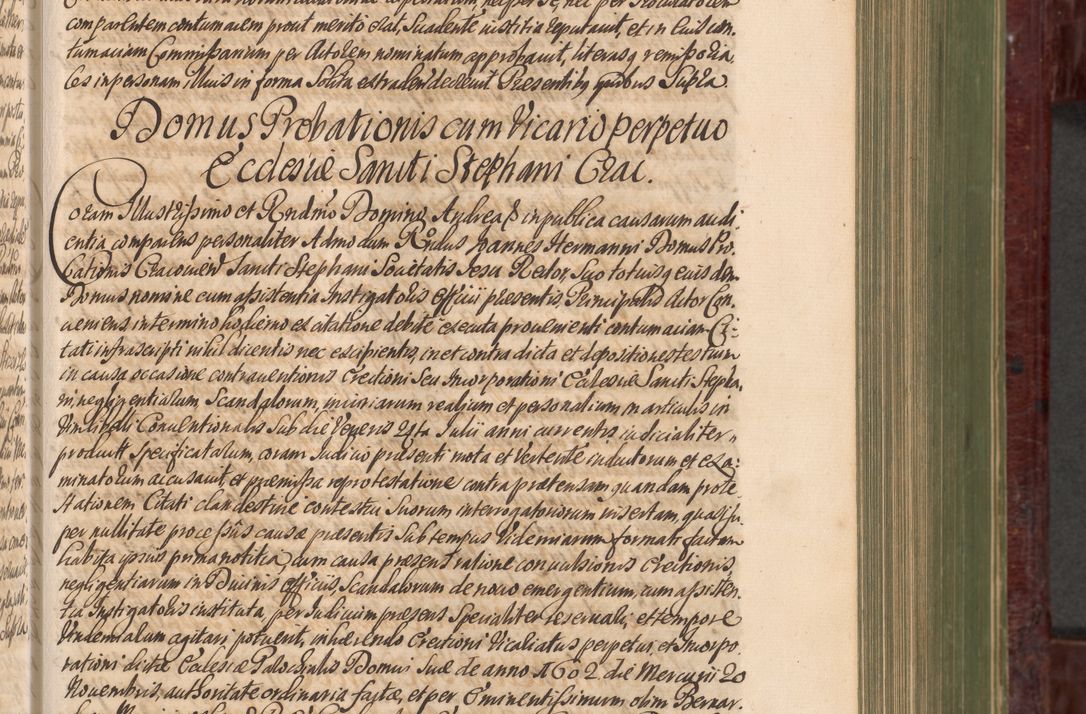 comparentem contumaciem prout merito erat, Suadente iustitia reputavit, et in Eius con
tumaciam Commissarium per Actorem nominatum approbavit, literasq remissoria
les in personam illius in forma Solita extradendas Presentibq quibus Supra
Domus Probationis cum Vicario perpetuo
Ecclesiæ Sancti Stephani Crac.
Coram Illustrissimo et Rndmo Domino Andrea in publica causarum audi
entia comparens personaliter Admodum Rndus Joannes Hermanni Domus Pro
bationis Cracovien Sancti Stephani Societatis Jesu Rector Suo totiusq eiusdem
Domus nomine cum assistentia Instigatoris officii presentis Principalis Actor Con
veniens in termino hodierno ex citatione debite executa provenienti contumaciam Ci:
tati infrascripti nihil dicentis nec excipientis, in et contra dicta et depositiones testium
in causa occasione contraventionis Erectioni Seu Incorporationi Ecclesiæ Sancti Stepha
ni, negligentiarum Scandalorum, iniuriarum realium et personalium in articulis in
Vim libelli Conventionalis Sub die Veneris 24ta Julii anni currentis iudicialiter
product Specificatarum, coram Judicio præsenti mota et Vertente inductorum et exa:
minatorum accusavit et præmissa reprotestatione contra prætensam quandam prote
stationem Citati clandestine contestui Suorum interrogatoriorum insertam, quasi Su
per nullitate processus causæ præsentis Sub tempus Videmiarum formati factam
habita ipsius prima notitia, cum causa præsens ratione convulsionis Erectionis,
negligentiarum in Divinis officiis, Scandalorum de novo emergentium, cum assisten
tia Instigatoris instituta, per Judicium præsens Specialiter reservata, et tempore
Vindemiarum agitari potuerit, inhærendo Erectioni Vicariatus perpetui, et Incorpo
rationi dictæ Ecclesiæ Parochialis Domui Suæ de anno 1602 die Mercurii 20
Novembris, authoritate ordinaria factæ, et per Eminentissimum olim Bernar